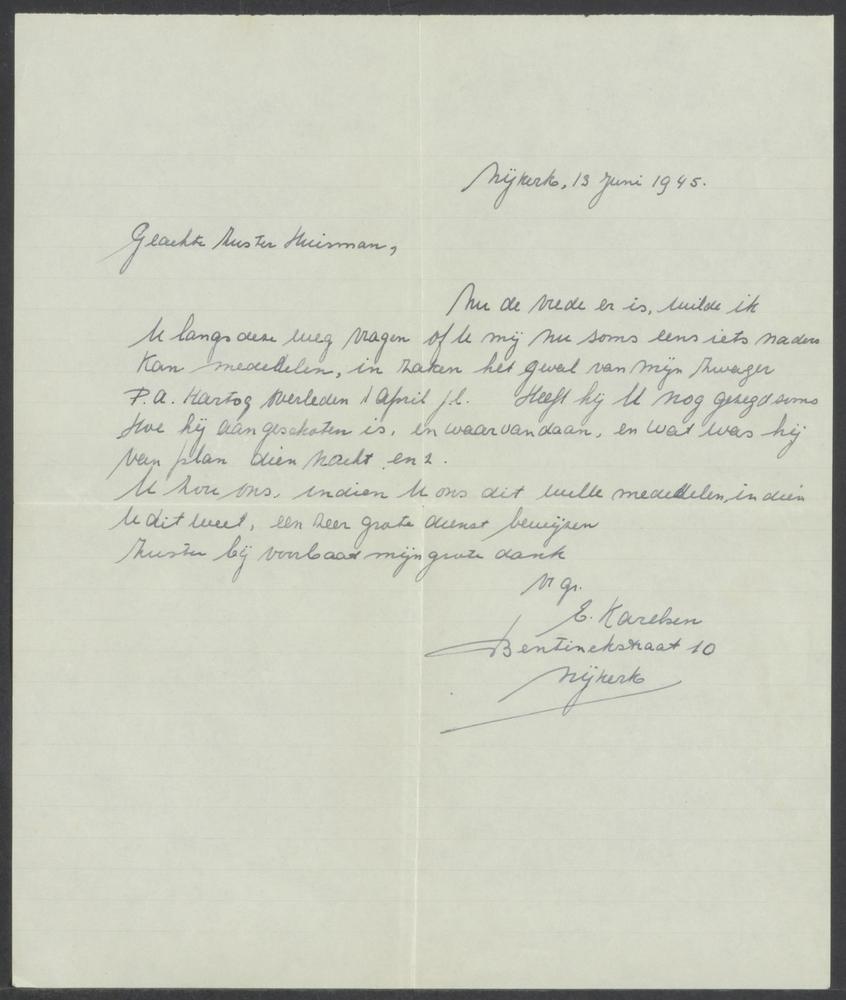 Nijkerk, 13 Juni 1945.
Geachte Zuster Huisman,
Nu de vrede er is, wilde ik
U langs deze weg vragen of U mij nu soms eens iets naders
kan mededelen, in zaken het geval van mijn zwager
P.A. Hartog overleden 1 april j.l. Heeft hij U nog gezegd soms
Hoe hij aangeschoten is, en waarvandaan, en wat was hij
van plan dien nacht enz.
U zou ons, indien U ons dit wilde mededelen, indien
U dit weet, een zeer grote dienst bewijzen
Zuster bij voorbaat mijn grote dank
Vr gr.
E. Karelsen
Bentinckstraat 10
Nijkerk